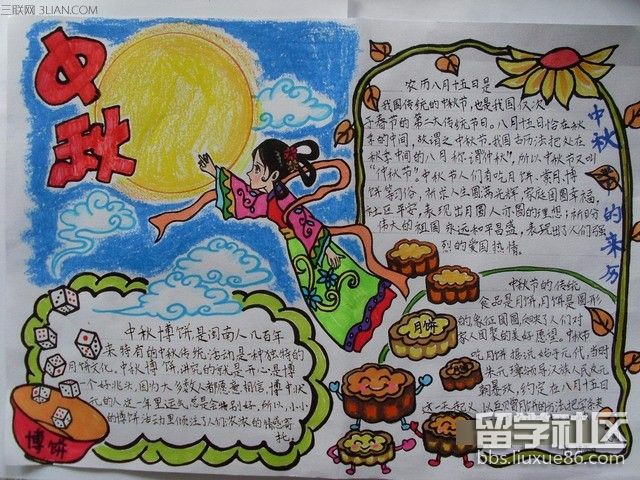 三联网 3LIAN.COM
中秋
农历八月十五日是
我国传统的中秋节,也是我国仅次
于春节的第二大传统节日。八月十五恰在秋
季的中间,故谓之中秋节,我国古历法把处在
秋季中间的八月称谓“仲秋”,所以中秋节又叫
“仲秋节”。中秋节人们有吃月饼、赏月、博
饼等习俗,祈求人生圆满光辉,家庭团圆幸福,
社区平安,表现出月圆人亦圆的理想;祈盼
伟大的祖国永远和平昌盛,表现出了人们强
烈的爱国热情。
中秋的来历
中秋节的传统
食品是月饼,月饼是圆形
的,象征团圆,反映了人们对
家人团聚的美好愿望。中秋节
吃月饼据说始于元代,当时
朱元璋领导汉族人民反元
朝暴政,约定在八月十五日
这一天起义
月饼
中秋博饼,是闽南人几百年
来特有的中秋传统活动,是一种独特的
月饼文化,中秋博饼,讲究的就是开心,是博
一个好兆头,因为大多数人都愿意相信,博中状
元的人,这一年里运气总是会特别好,所以,小小
的博饼活动里倾注了人们浓浓的情感寄
托。
博饼
留学社区
bbs.liuxue86.com